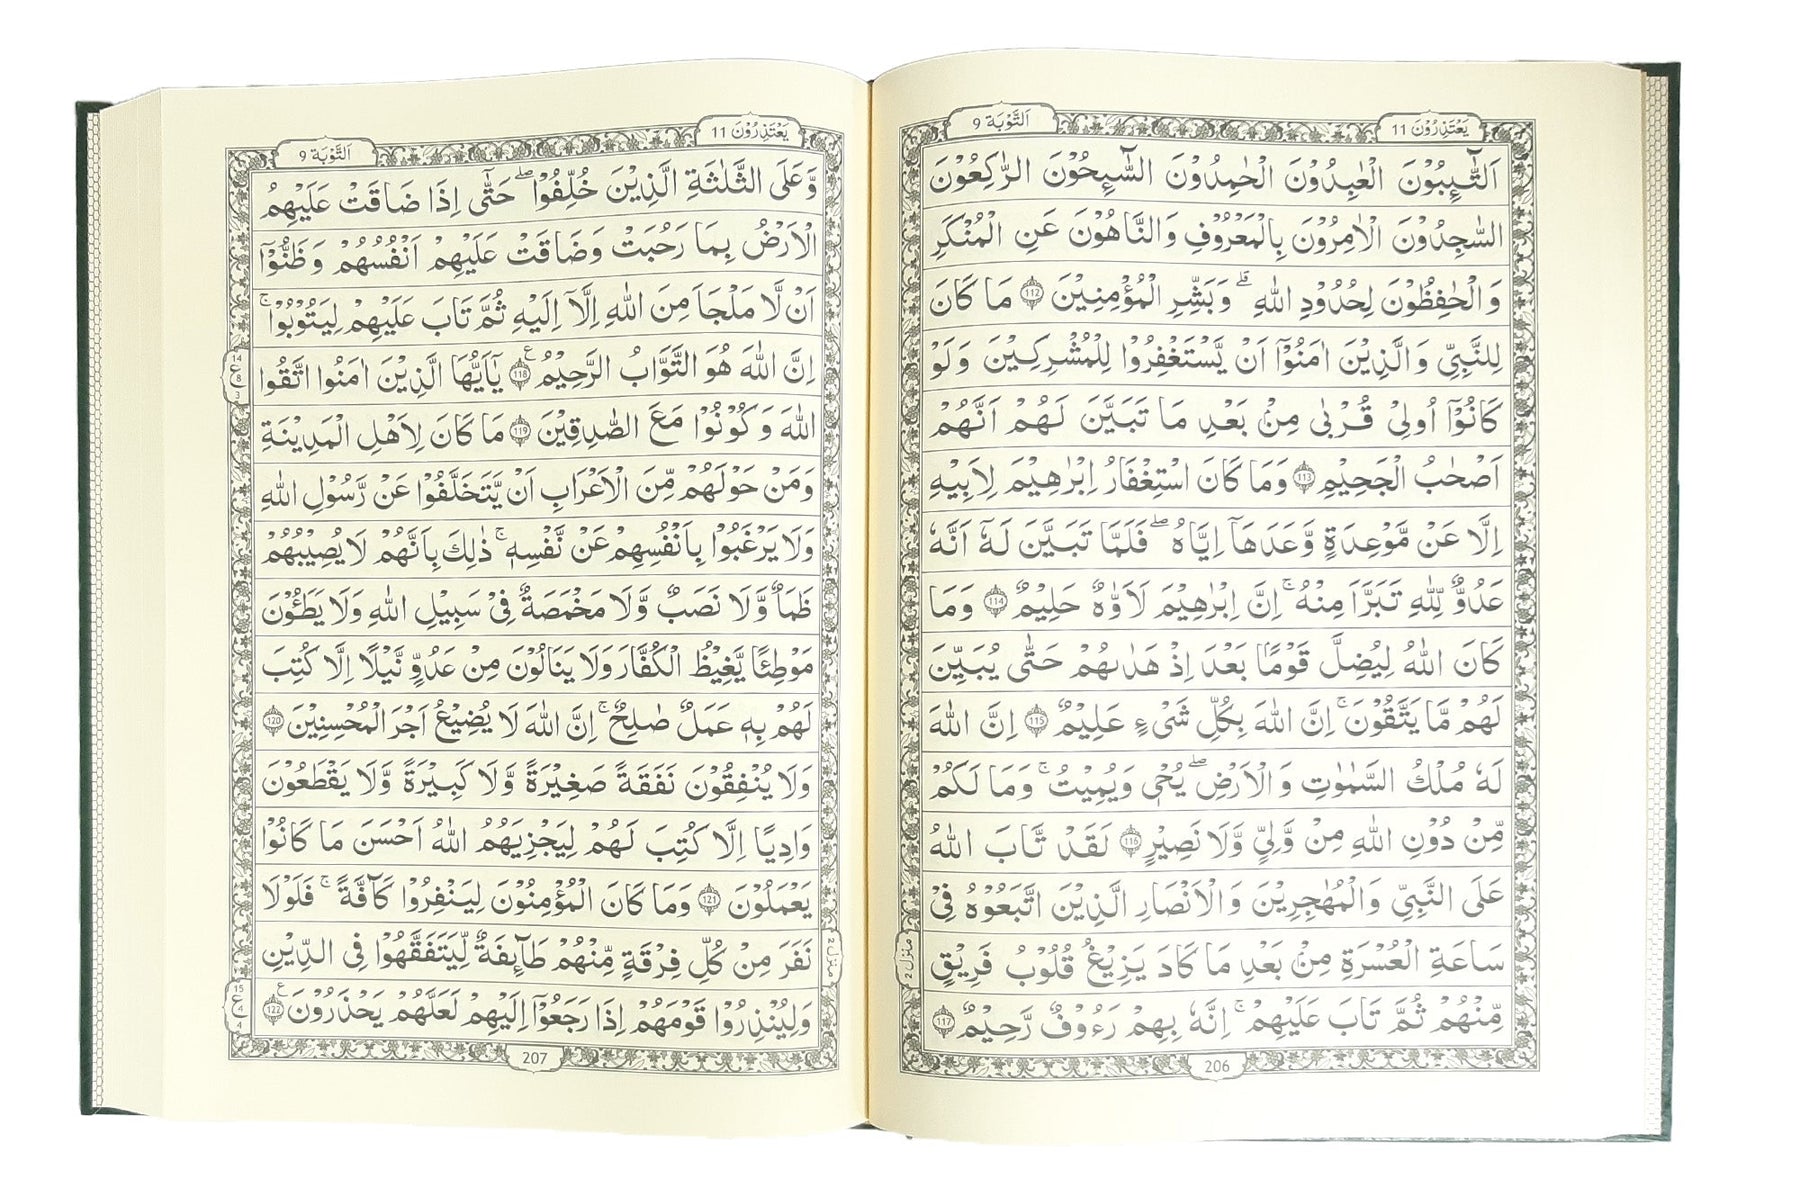 يَعْتَذِرُوْنَ 11
اَلتَّوْبَة 9
اَلتَّآئِبُوْنَ الْعٰبِدُوْنَ الْحٰمِدُوْنَ السَّآئِحُوْنَ الرّٰكِعُوْنَ
السّٰجِدُوْنَ الْاٰمِرُوْنَ بِالْمَعْرُوْفِ وَالنَّاهُوْنَ عَنِ الْمُنْكَرِ
وَالْحٰفِظُوْنَ لِحُدُوْدِ اللّٰهِ ؕ وَبَشِّرِ الْمُؤْمِنِيْنَ 112 مَا كَانَ
لِلنَّبِيِّ وَالَّذِيْنَ اٰمَنُوْۤا اَنْ يَّسْتَغْفِرُوْا لِلْمُشْرِكِيْنَ وَلَوْ
كَانُوْۤا اُولِيْ قُرْبٰى مِنْۢ بَعْدِ مَا تَبَيَّنَ لَهُمْ اَنَّهُمْ
اَصْحٰبُ الْجَحِيْمِ 113 وَمَا كَانَ اسْتِغْفَارُ اِبْرٰهِيْمَ لِاَبِيْهِ
اِلَّا عَنْ مَّوْعِدَةٍ وَّعَدَهَاۤ اِيَّاهُ ۖ فَلَمَّا تَبَيَّنَ لَهٗۤ اَنَّهٗ
عَدُوٌّ لِّلّٰهِ تَبَرَّاَ مِنْهُ ۚ اِنَّ اِبْرٰهِيْمَ لَاَوَّاهٌ حَلِيْمٌ 114 وَمَا
كَانَ اللّٰهُ لِيُضِلَّ قَوْمًۢا بَعْدَ اِذْ هَدٰىهُمْ حَتّٰى يُبَيِّنَ
لَهُمْ مَّا يَتَّقُوْنَ ۚ اِنَّ اللّٰهَ بِكُلِّ شَيْءٍ عَلِيْمٌ 115 اِنَّ اللّٰهَ
لَهٗ مُلْكُ السَّمٰوٰتِ وَالْاَرْضِ ۖ يُحْيٖ وَيُمِيْتُ ۚ وَمَا لَكُمْ
مِّنْ دُوْنِ اللّٰهِ مِنْ وَّلِيٍّ وَّلَا نَصِيْرٍ 116 لَقَدْ تَّابَ اللّٰهُ
عَلَى النَّبِيِّ وَالْمُهٰجِرِيْنَ وَالْاَنْصَارِ الَّذِيْنَ اتَّبَعُوْهُ فِيْ
سَاعَةِ الْعُسْرَةِ مِنْۢ بَعْدِ مَا كَادَ يَزِيْغُ قُلُوْبُ فَرِيْقٍ
مِّنْهُمْ ثُمَّ تَابَ عَلَيْهِمْ ۚ اِنَّهٗ بِهِمْ رَءُوْفٌ رَّحِيْمٌ 117
منزل 2
206
يَعْتَذِرُوْنَ 11
اَلتَّوْبَة 9
وَّعَلَى الثَّلٰثَةِ الَّذِيْنَ خُلِّفُوْا ۖ حَتّٰۤى اِذَا ضَاقَتْ عَلَيْهِمُ
الْاَرْضُ بِمَا رَحُبَتْ وَضَاقَتْ عَلَيْهِمْ اَنْفُسُهُمْ وَظَنُّوْۤا
اَنْ لَّا مَلْجَاَ مِنَ اللّٰهِ اِلَّاۤ اِلَيْهِ ثُمَّ تَابَ عَلَيْهِمْ لِيَتُوْبُوْا ۚ
اِنَّ اللّٰهَ هُوَ التَّوَّابُ الرَّحِيْمُ 118 يٰۤاَيُّهَا الَّذِيْنَ اٰمَنُوا اتَّقُوا
اللّٰهَ وَكُوْنُوْا مَعَ الصّٰدِقِيْنَ 119 مَا كَانَ لِاَهْلِ الْمَدِيْنَةِ
وَمَنْ حَوْلَهُمْ مِّنَ الْاَعْرَابِ اَنْ يَّتَخَلَّفُوْا عَنْ رَّسُوْلِ اللّٰهِ
وَلَا يَرْغَبُوْا بِاَنْفُسِهِمْ عَنْ نَّفْسِهٖ ۚ ذٰلِكَ بِاَنَّهُمْ لَا يُصِيْبُهُمْ
ظَمَاٌ وَّلَا نَصَبٌ وَّلَا مَخْمَصَةٌ فِيْ سَبِيْلِ اللّٰهِ وَلَا يَطَـُٔوْنَ
مَوْطِئًا يَّغِيْظُ الْكُفَّارَ وَلَا يَنَالُوْنَ مِنْ عَدُوٍّ نَّيْلًا اِلَّا كُتِبَ
لَهُمْ بِهٖ عَمَلٌ صَالِحٌ ۚ اِنَّ اللّٰهَ لَا يُضِيْعُ اَجْرَ الْمُحْسِنِيْنَ 120
وَلَا يُنْفِقُوْنَ نَفَقَةً صَغِيْرَةً وَّلَا كَبِيْرَةً وَّلَا يَقْطَعُوْنَ
وَادِيًا اِلَّا كُتِبَ لَهُمْ لِيَجْزِيَهُمُ اللّٰهُ اَحْسَنَ مَا كَانُوْا
يَعْمَلُوْنَ 121 وَمَا كَانَ الْمُؤْمِنُوْنَ لِيَنْفِرُوْا كَآفَّةً ۚ فَلَوْلَا
نَفَرَ مِنْ كُلِّ فِرْقَةٍ مِّنْهُمْ طَآئِفَةٌ لِّيَتَفَقَّهُوْا فِي الدِّيْنِ
وَلِيُنْذِرُوْا قَوْمَهُمْ اِذَا رَجَعُوْۤا اِلَيْهِمْ لَعَلَّهُمْ يَحْذَرُوْنَ 122
منزل 2
207